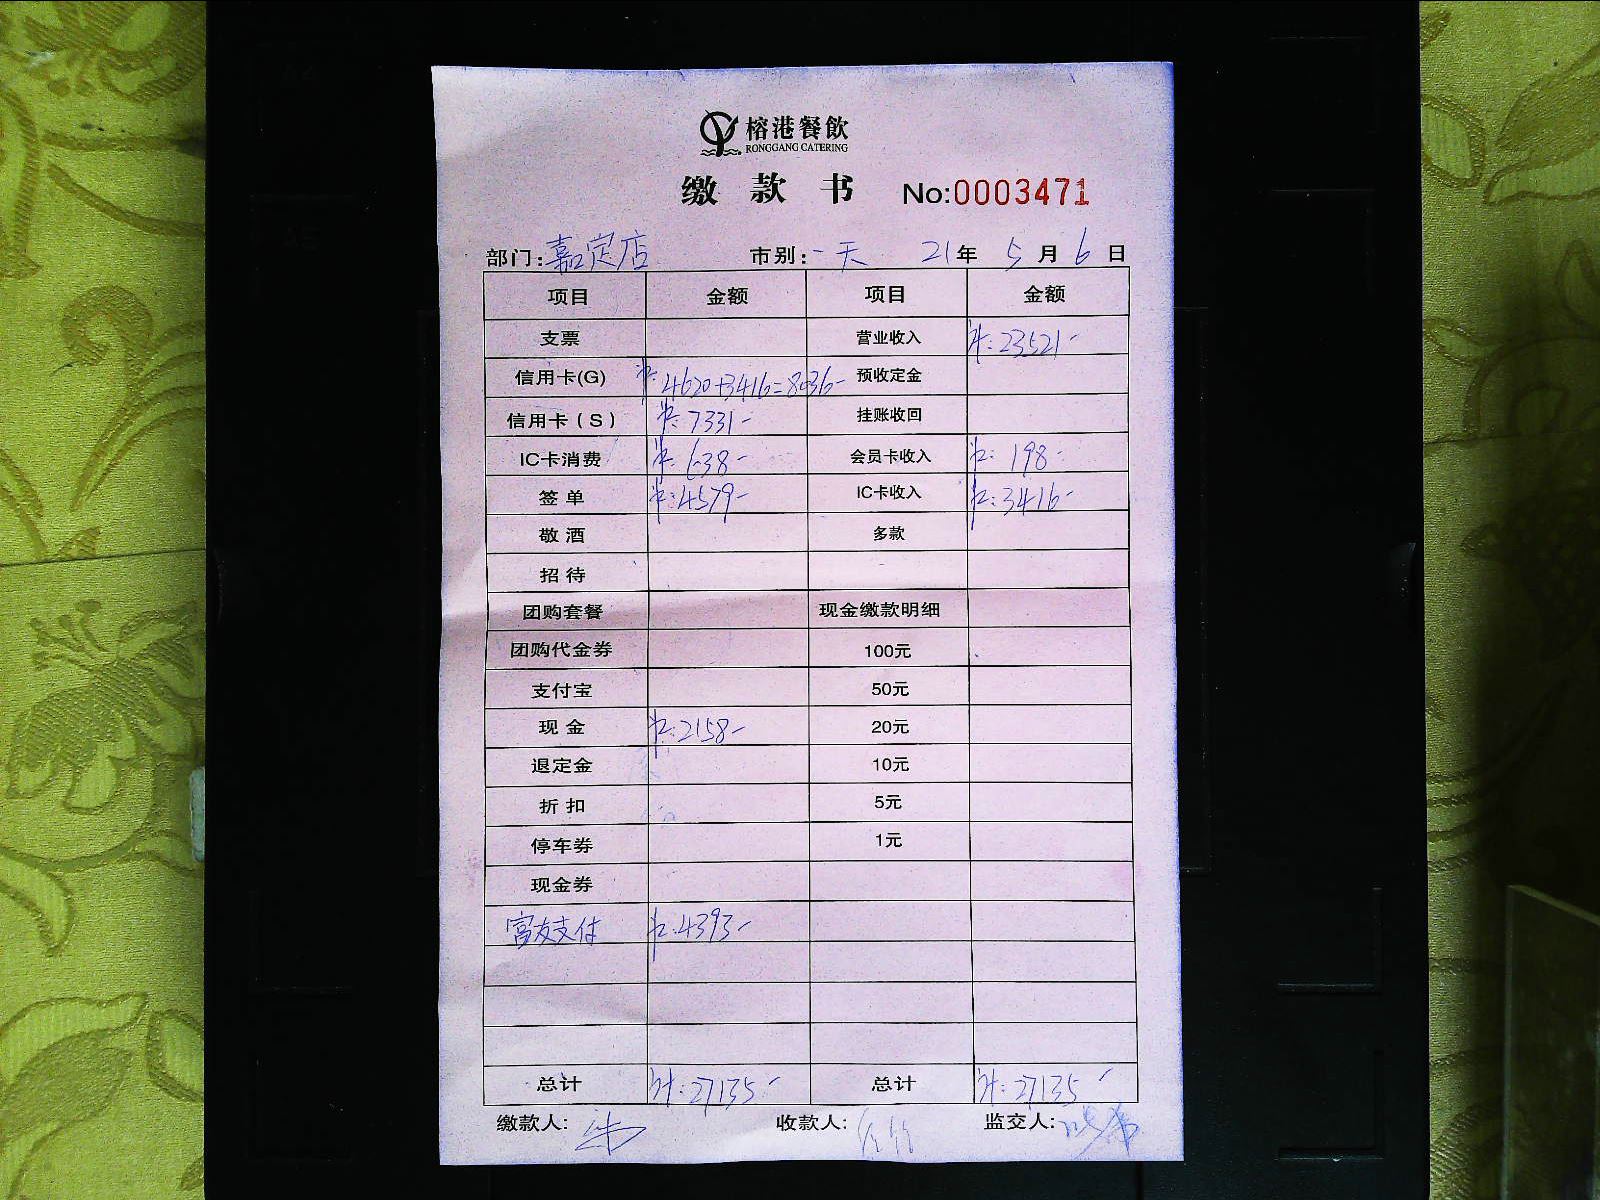 榕港餐飲
RONGGANG CATERING
缴款书 No:0003471
部门:嘉定店 市别:一天 21年5月6日
项目 金额 项目 金额
支票 营业收入 计:23521-
信用卡(G) 卡:4620+3416=8036- 预收定金
信用卡(S) 卡:7331- 挂账收回
IC卡消费 卡:638- 会员卡收入 卡:198-
签单 卡:4579- IC卡收入 卡:3416-
敬酒 多款
招待
团购套餐 现金缴款明细
团购代金券 100元
支付宝 50元
现金 卡:2158- 20元
退定金 10元
折扣 5元
停车券 1元
现金券
富友支付 卡:4393-
总计 计:27135- 总计 计:27135-
缴款人: 收款人: 监交人: